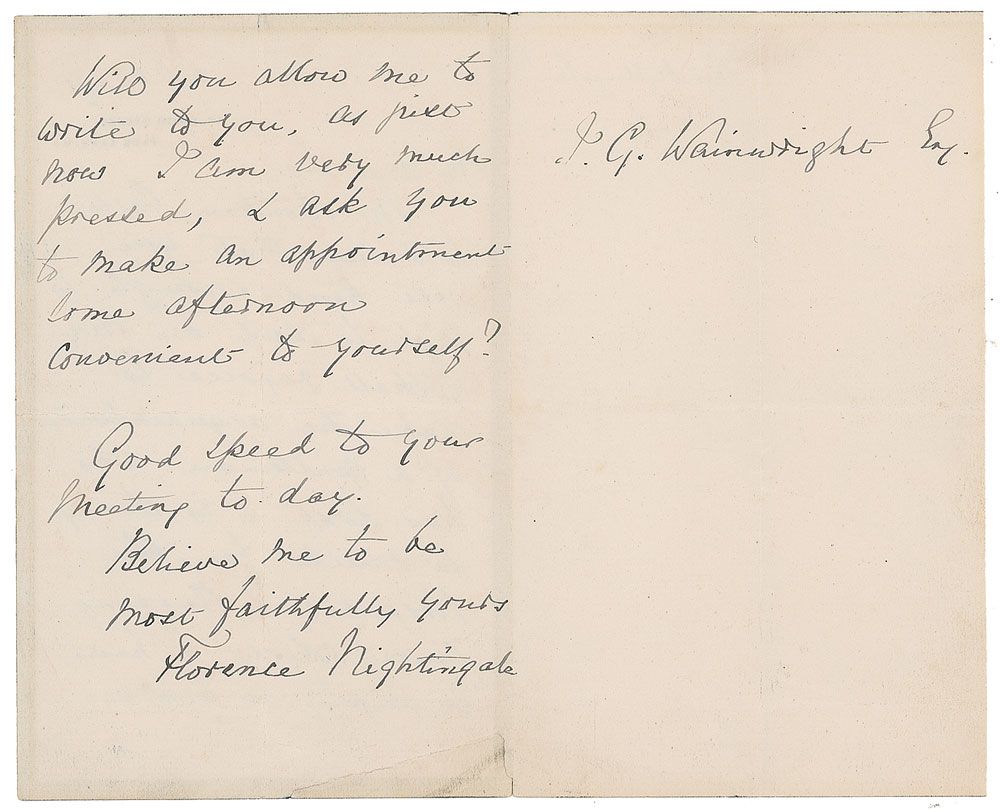 Will you allow me to
write to you, as just
now I am very much
pressed, & ask you
to make an appointment
some afternoon
convenient to yourself?
Good speed to your
Meeting to day.
Believe me to be
most faithfully yours
Florence Nightingale
J. G. Wainwright Esq.